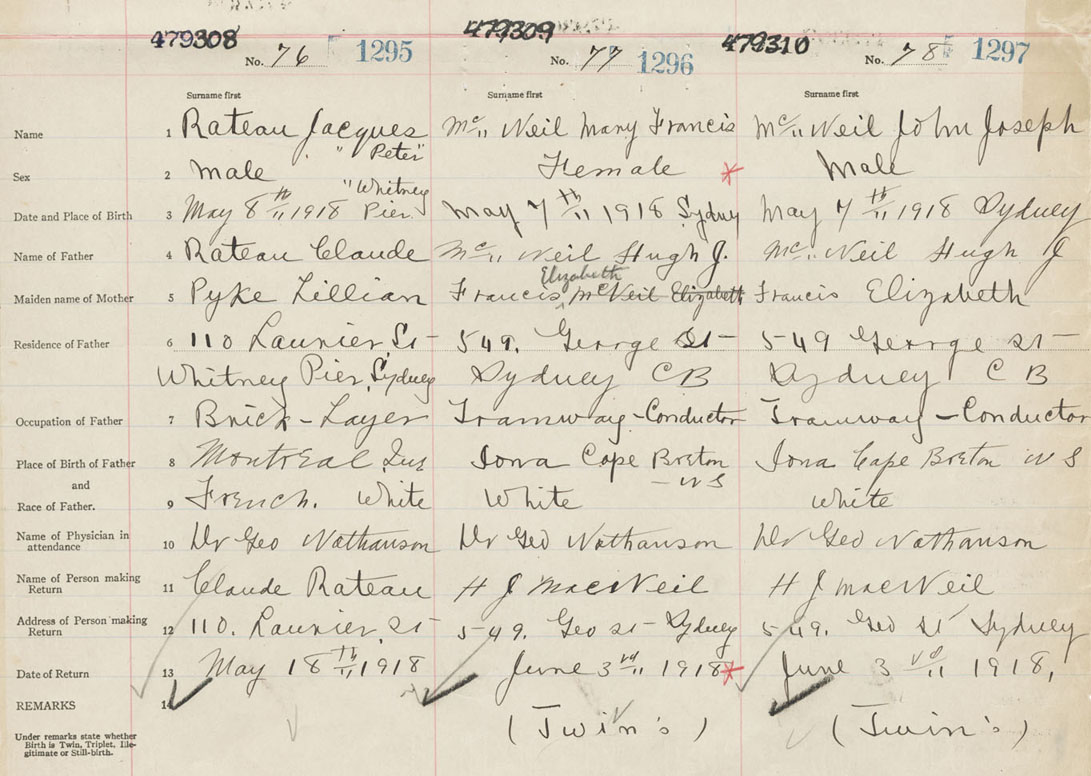 479308 479309 479310
No. 76 1295 No. 77 1296 No. 78 1297
Surname first Surname first Surname first
Name 1 Rateau Jacques Mc" Neil Mary Francis Mc" Neil John Joseph
" Peter"
Sex 2 Male Female Male
"Whitney
Date and Place of Birth 3 May 8th" 1918 Pier May 7th" 1918 Sydney May 7th" 1918 Sydney
Name of Father 4 Rateau Claude Mc" Neil Hugh J. Mc" Neil Hugh J
Elizabeth
Maiden name of Mother 5 Pyke Lillian Francis, McNeil Elizabeth Francis Elizabeth
Residence of Father 6 110 Laurier St 549. George St 549 George St
Whitney Pier, Sydney Sydney C B Sydney C B
Occupation of Father 7 Brick-Layer Tramway-Conductor Tramway-Conductor
Place of Birth of Father 8 Montreal Que Iona Cape Breton Iona Cape Breton N S
and — N S
Race of Father. 9 French. White White White
Name of Physician in
attendance 10 Dr Geo Nathanson Dr Geo Nathanson Dr Geo Nathanson
Name of Person making
Return 11 Claude Rateau H J MacNeil H J MacNeil
Address of Person making
Return 12 110. Laurier St 549. Geo St Sydney 549. Geo St Sydney
Date of Return 13 May 18th" 1918 June 3rd" 1918 June 3rd" 1918,
REMARKS 14
(Twin's) (Twin's)
Under remarks state whether
Birth is Twin, Triplet, Ille-
gitimate or Still-birth.